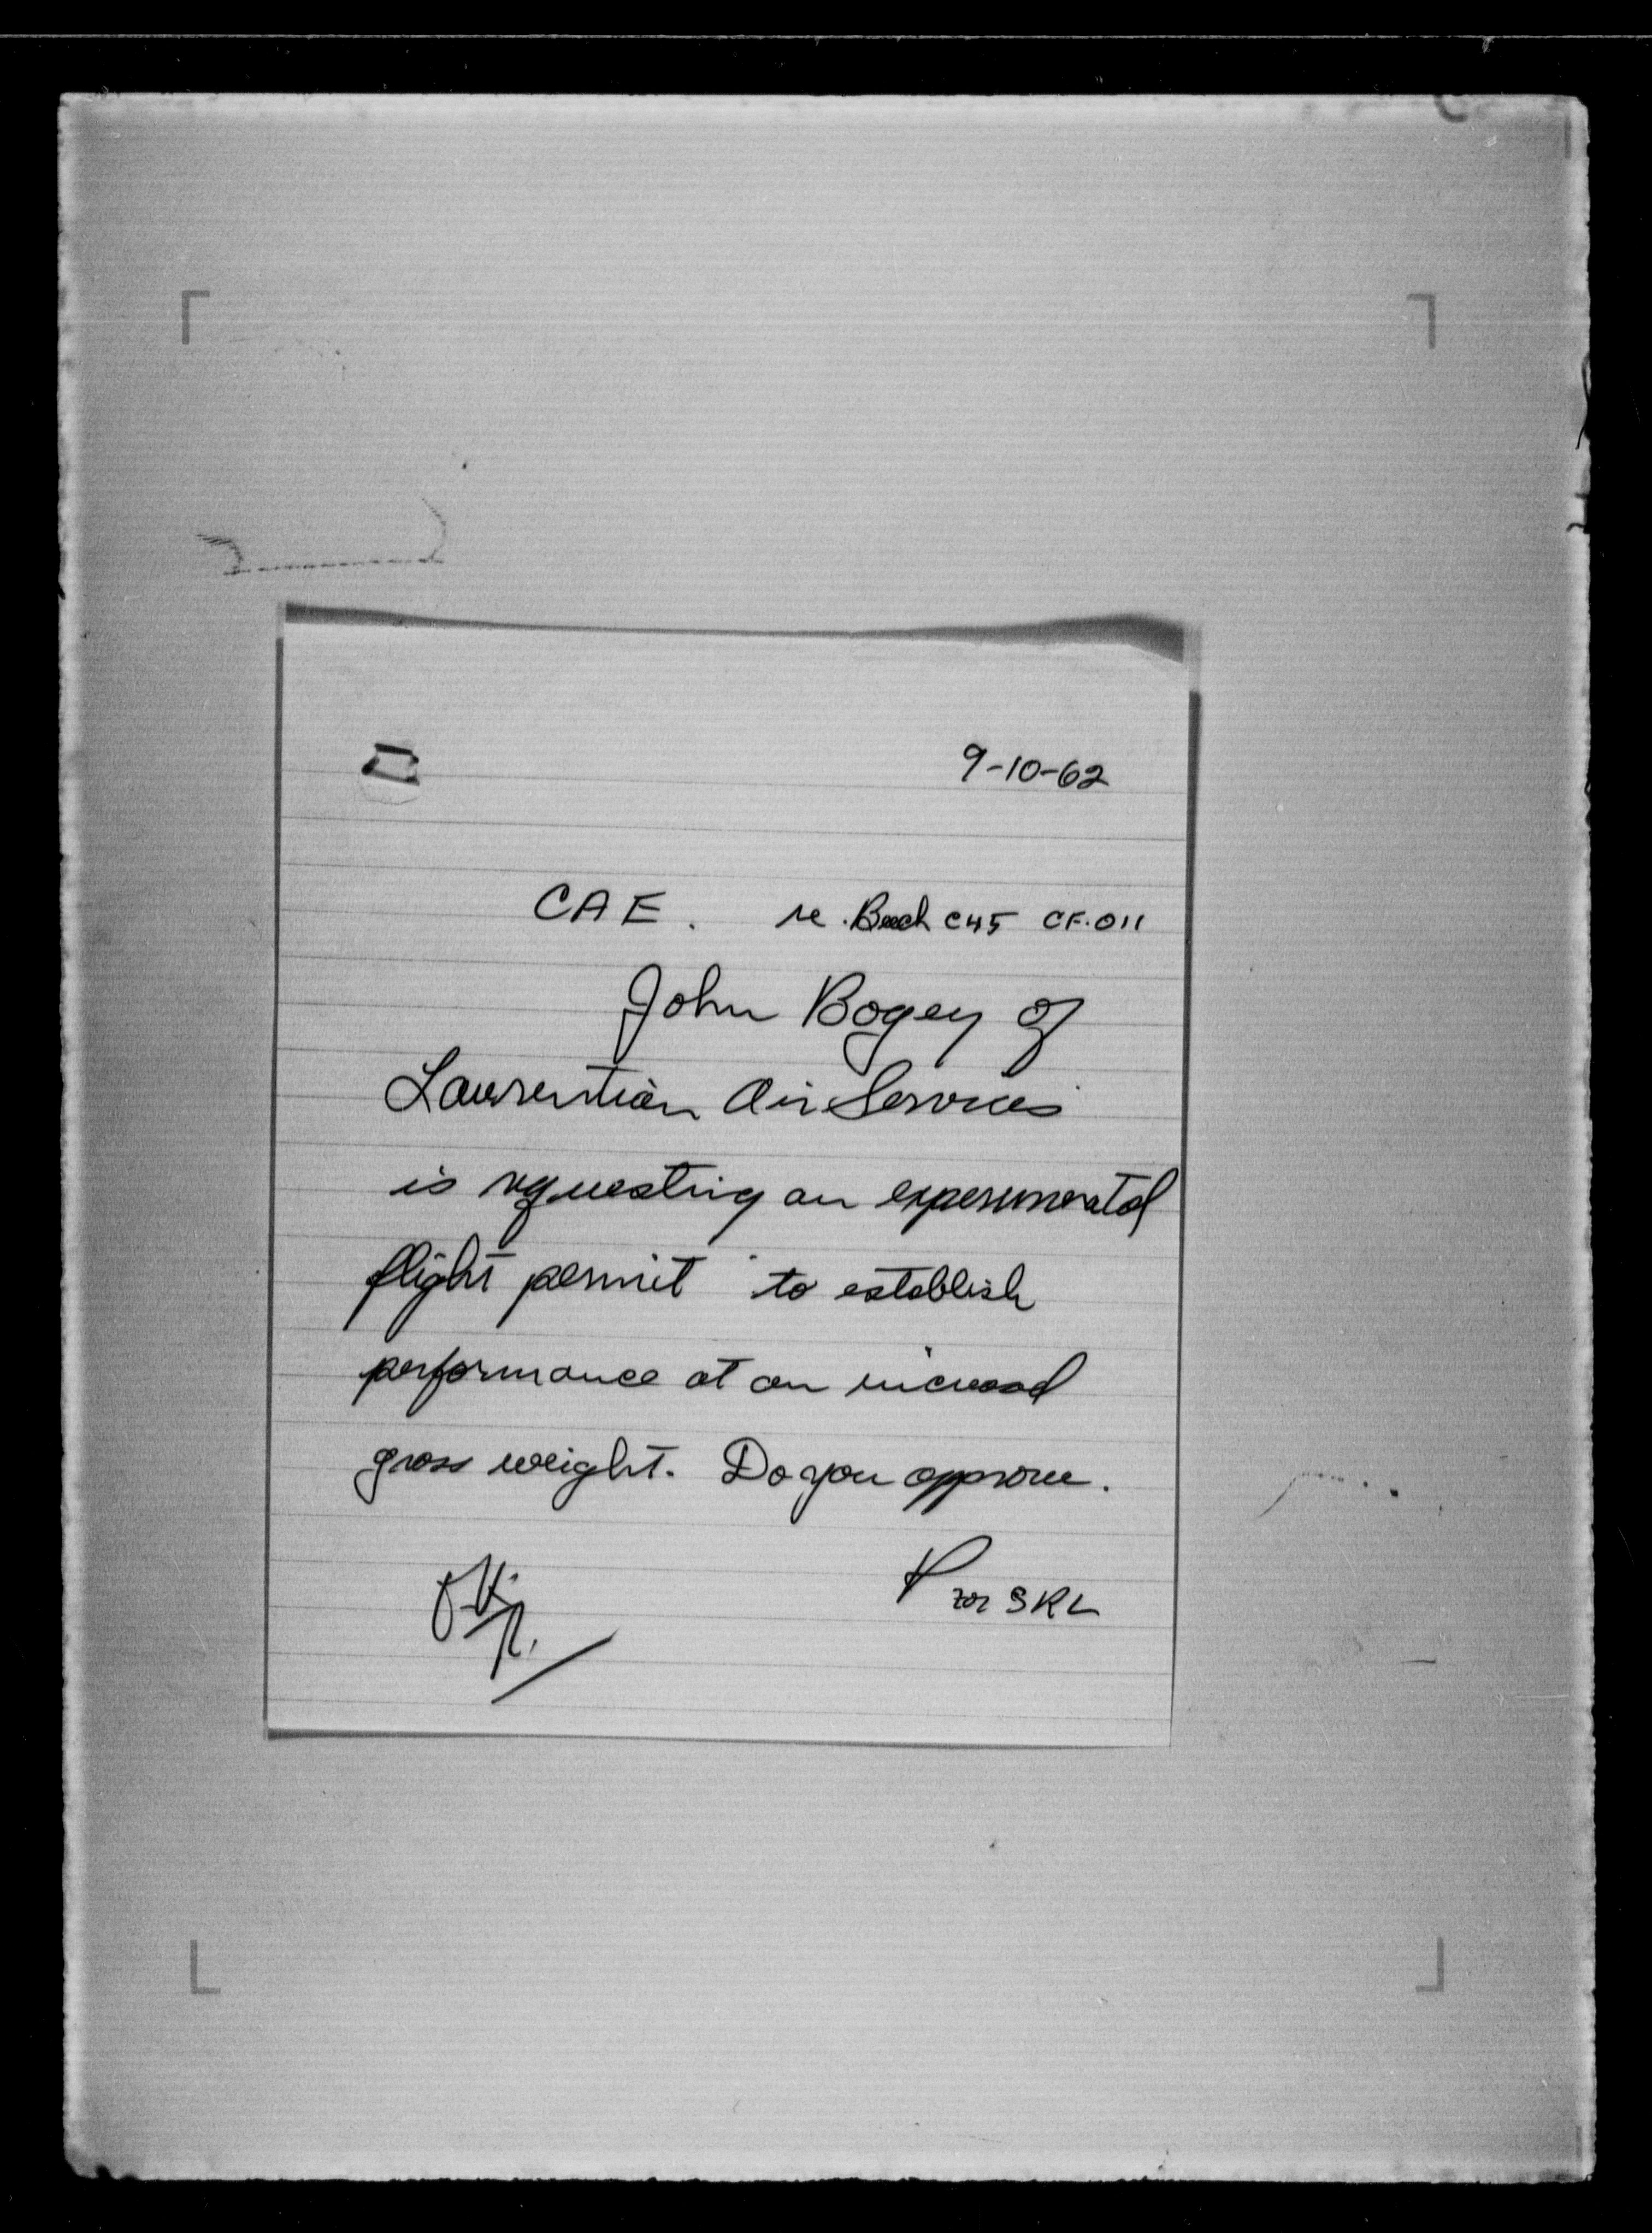 9-10-62
CAE. re. Beech C45 CF.011
John Bogey of
Laurentian Air Services
is requesting an experimental
flight permit to establish
performance at an increased
gross weight. Do you approve.
for SRL